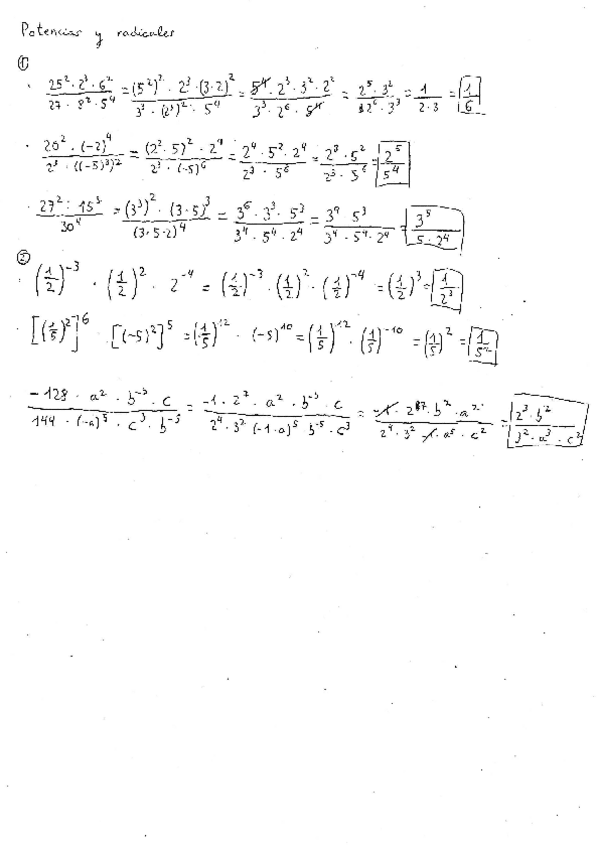 Potencias y radicales
①
· 25² · 2³ · 6² / 27 · 8² · 5⁴ = (5²)² · 2³ · (3·2)² / 3³ · (2³)² · 5⁴ = 5⁴ · 2³ · 3² · 2² / 3³ · 2⁶ · 5⁴ = 2⁵ · 3² / 2⁶ · 3³ = 1 / 2·3 = 1/6
· 20² · (-2)⁴ / 2³ · ((-5)³)² = (2² · 5)² · 2⁴ / 2³ · (-5)⁶ = 2⁴ · 5² · 2⁴ / 2³ · 5⁶ = 2⁸ · 5² / 2³ · 5⁶ = 2⁵ / 5⁴
· 27² : 15³ / 30⁴ = (3³)² · (3·5)³ / (3·5·2)⁴ = 3⁶ · 3³ · 5³ / 3⁴ · 5⁴ · 2⁴ = 3⁹ 5³ / 3⁴ · 5⁴ · 2⁴ = 3⁵ / 5 · 2⁴
②
(1/2)⁻³ · (1/2)² · 2⁻⁴ = (1/2)⁻³ · (1/2)² · (1/2)⁻⁴ = (1/2)³ = 1/2³
[(1/5)²]⁶ · [(-5)²]⁵ = (1/5)¹² · (-5)¹⁰ = (1/5)¹² · (1/5)⁻¹⁰ = (1/5)² = 1/5²
-128 · a² · b⁻³ · c / 144 · (-a)⁵ · c³ · b⁻⁵ = -1 · 2⁷ · a² · b⁻³ · c / 2⁴ · 3² (-1·a)⁵ b⁻⁵ · c³ = -1 · 2⁷ · b² · a² / 2⁴ · 3² -1 · a⁵ · c² = 2³ · b² / 3² · a³ · c²